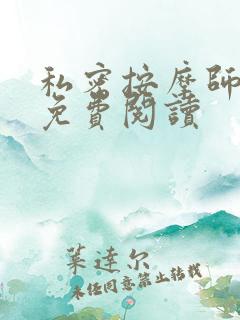 私密按摩師
免費閱讀
葉達尔
未经同意禁止转载